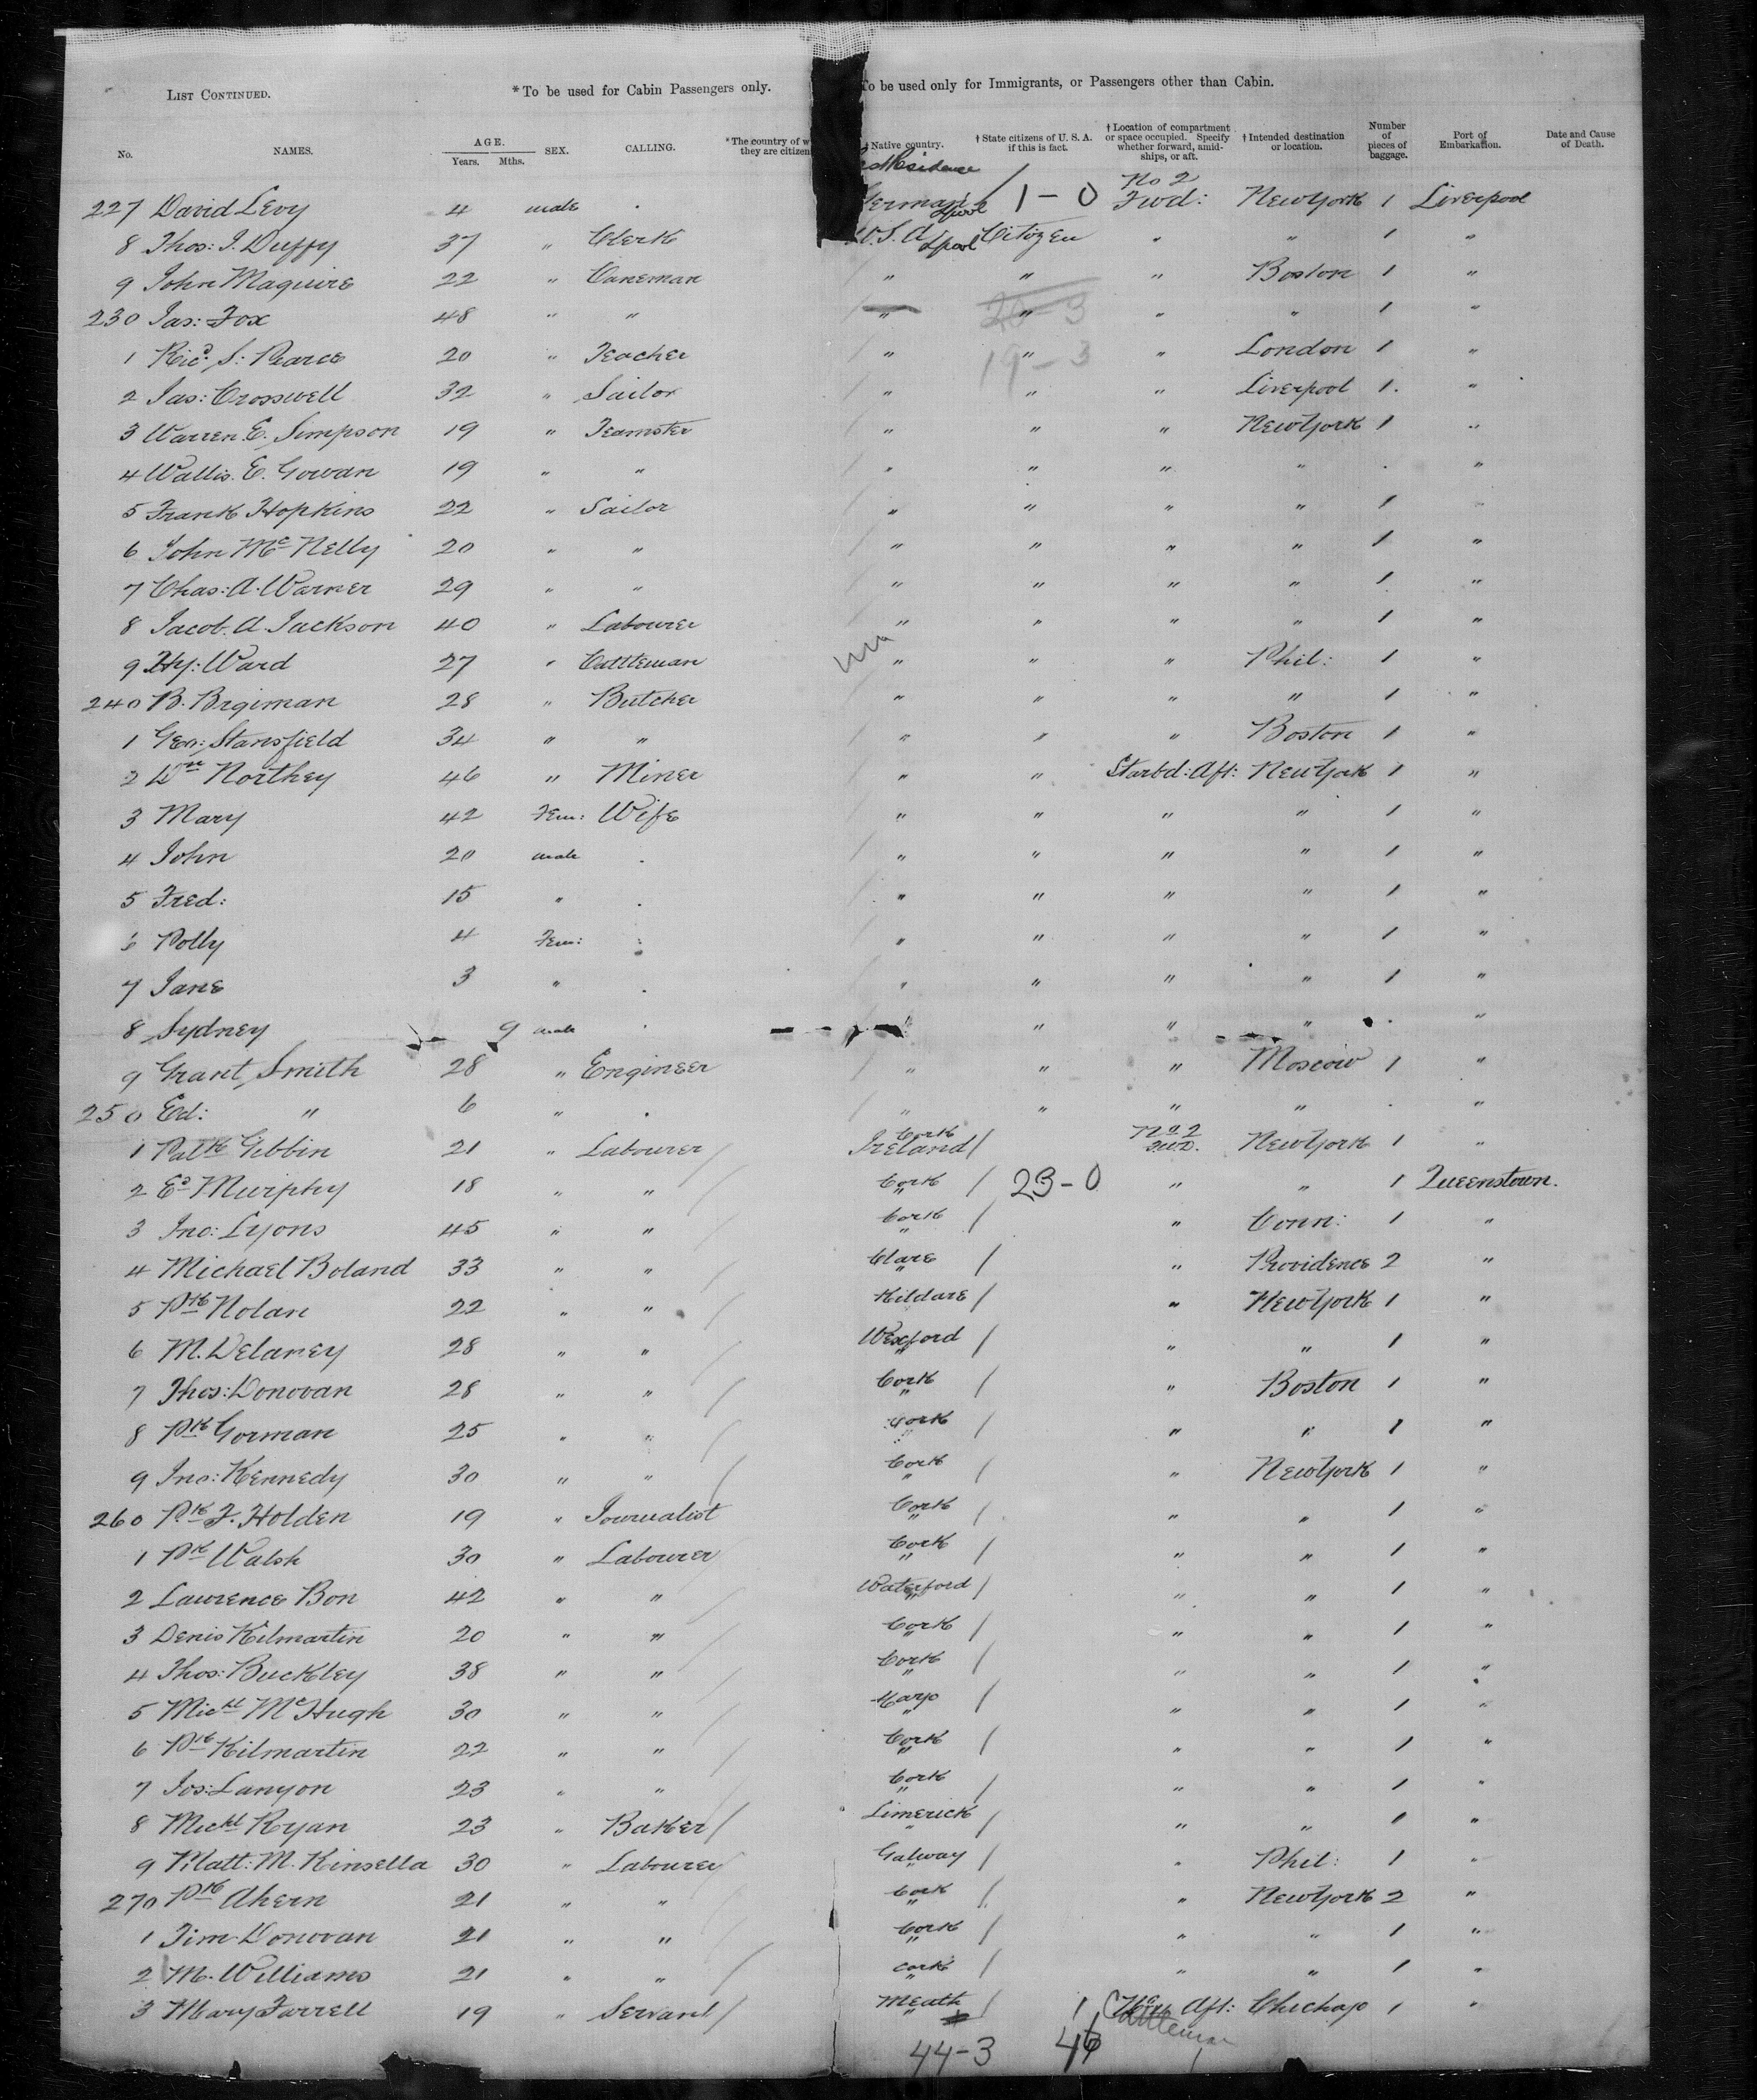 LIST CONTINUED. *To be used for Cabin Passengers only. To be used only for Immigrants, or Passengers other than Cabin.
No. NAMES. AGE. Years. Mths. SEX. CALLING. *The country of w they are citizen †Native country. †State citizens of U. S. A. if this is fact. †Location of compartment or space occupied. Specify whether forward, amid-ships, or aft. †Intended destination or location. Number of pieces of baggage. Port of Embarkation. Date and Cause of Death.
Residence
227 David Levy 4 male . German Lpool 1-0 No 2 Fwd: New York 1 Liverpool
8 Thos: J. Duffy 37 " Clerk U.S.A. Lpool Citizen " " 1 "
9 John Maguire 22 " Caneman " " " Boston 1 "
230 Jas: Fox 48 " " " " 20-3 " " 1 "
1 Ricd: S: Pearce 20 " Teacher " " 19-3 " London 1 "
2 Jas: Crosswell 32 " Sailor " " " Liverpool 1. "
3 Warren E. Simpson 19 " Teamster " " " New York 1 "
4 Wallis. E. Gowan 19 " " " " " " . "
5 Frank Hopkins 22 " Sailor " " " " 1 "
6 John McNelly 20 " " " " " " 1 "
7 Chas: A. Warner 29 " " " " " " 1 "
8 Jacob. A. Jackson 40 " Labourer " " " " 1 "
9 Hy: Ward 27 " Cattleman " " " Phil: 1 "
240 B. Brgiman 28 " Butcher " " " " 1 "
1 Geo: Stansfield 34 " " " " " Boston 1 "
2 Wm Northey 46 " Miner " " Starbd: Aft: New York 1 "
3 Mary 42 Fem: Wife " " " " 1 "
4 John 20 male . " " " " 1 "
5 Fred: 15 " . " " " " 1 "
6 Polly 4 Fem: . " " " " 1 "
7 Jane 3 " . " " " " 1 "
8 Sydney 9 male . " " " " . "
9 Grant Smith 28 " Engineer " " " Moscow 1 "
250 Ed: " 6 " . " " " " . "
1 Patk Gibbin 21 " Labourer Cork Ireland / No 2 Fwd. New York 1 "
2 Ed Murphy 18 " " Cork " / 23-0 " " 1 Queenstown.
3 Jno: Lyons 45 " " Cork " / " Conn: 1 "
4 Michael Boland 33 " " Clare " / " Providence 2 "
5 Pk Nolan 22 " " Kildare / " New York 1 "
6 M. Delaney 28 " " Wexford " / " " 1 "
7 Thos: Donovan 28 " " Cork " / " Boston 1 "
8 Pk Gorman 25 " " Cork " / " " 1 "
9 Jno: Kennedy 30 " " Cork " / " New York 1 "
260 Pk F. Holden 19 " Journalist Cork " / " " 1 "
1 Pk Walsh 30 " Labourer Cork " / " " 1 "
2 Lawrence Bon 42 " " Waterford " / " " 1 "
3 Denis Kilmartin 20 " " Cork " / " " 1 "
4 Thos: Buckley 38 " " Cork " / " " 1 "
5 Michl McHugh 30 " " Mayo " / " " 1 "
6 Pk Kilmartin 22 " " Cork " / " " 1 "
7 Jos: Lanyon 23 " " Cork " / " " 1 "
8 Michl Ryan 23 " Baker Limerick " / " " 1 "
9 Matt: M. Kinsella 30 " Labourer Galway " / " Phil: 1 "
270 Pk Ahern 21 " " Cork " / " New York 2 "
1 Tim Donovan 21 " " Cork " / " " 1 "
2 M. Williams 21 " " Cork " / " " 1 "
3 Mary Farrell 19 " Servant Meath " / 1 Aft: Chichago 1 "
44-3 Cattleman